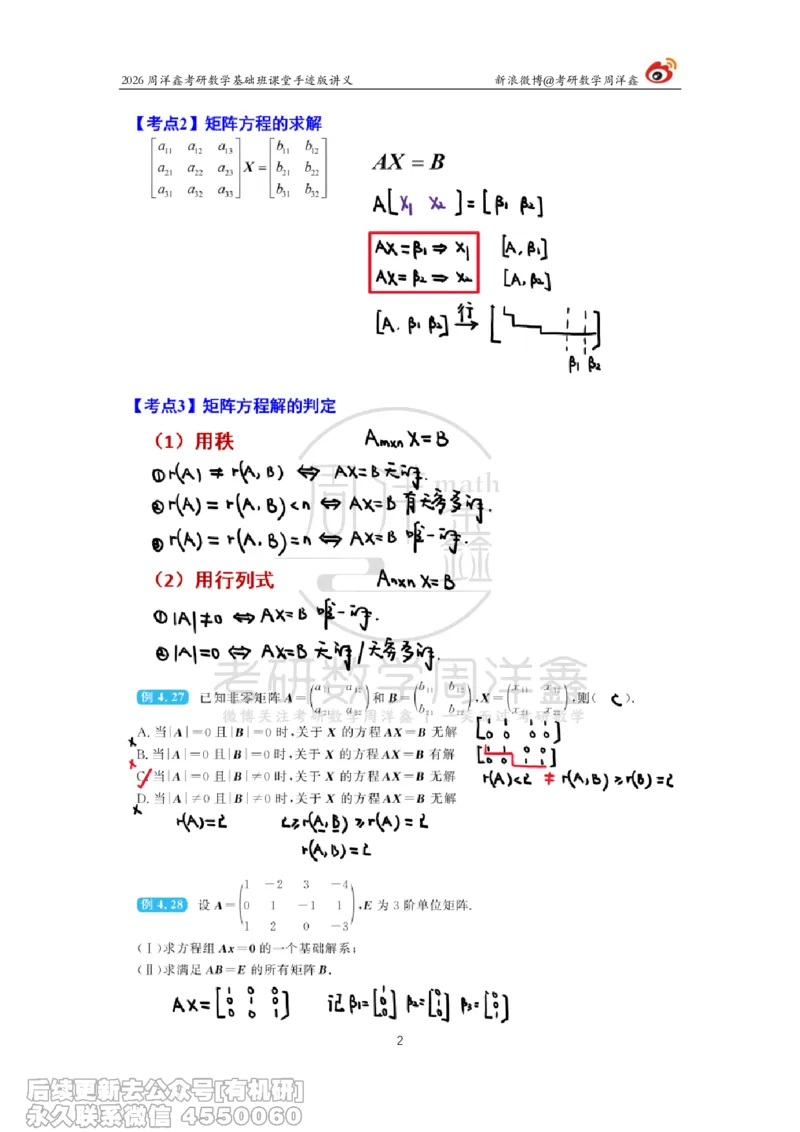 2026 周洋鑫考研数学基础班课堂手迹版讲义 新浪微博@考研数学周洋鑫
【考点2】矩阵方程的求解
[a11 a12 a13; a21 a22 a23; a31 a32 a33] X = [b11 b12; b21 b22; b31 b32]
AX = B
A[x1 x2] = [β1 β2]
AX=β1 ⇒ x1 [A, β1]
AX=β2 ⇒ x2 [A, β2]
[A. β1 β2] 行→ [ ]
β1 β2
【考点3】矩阵方程解的判定
（1）用秩 Am×n X=B
①r(A) ≠ r(A, B) ⇔ AX=B 无解.
②r(A) = r(A, B) < n ⇔ AX=B 有无穷多解.
③r(A) = r(A, B) = n ⇔ AX=B 唯一解.
（2）用行列式 An×n X=B
①|A|≠0 ⇔ AX=B 唯一解.
②|A|=0 ⇔ AX=B 无解/无穷多解.
例 4.27 已知非零矩阵 A=(a11 a12; a21 a22) 和 B=(b11 b12; b21 b22), X=(x11 x12; x21 x22), 则( C ).
A. 当|A|=0 且|B|=0 时,关于 X 的方程 AX=B 无解 [1 1 1 1; 0 0 0 0]
B. 当|A|=0 且|B|=0 时,关于 X 的方程 AX=B 有解 [1 1 0 0; 0 0 1 1]
C. 当|A|=0 且|B|≠0 时,关于 X 的方程 AX=B 无解 r(A)<2 ≠ r(A,B) ≥ r(B)=2
D. 当|A|≠0 且|B|≠0 时,关于 X 的方程 AX=B 无解
r(A)=2 2≥r(A,B)≥r(A)=2
r(A,B)=2
例 4.28 设 A=(1 -2 3 -4; 0 1 -1 1; 1 2 0 -3), E 为 3 阶单位矩阵.
(Ⅰ)求方程组 Ax=0 的一个基础解系;
(Ⅱ)求满足 AB=E 的所有矩阵 B.
AX=[1 0 0; 0 1 0; 0 0 1] 记 β1=[1; 0; 0] β2=[0; 1; 0] β3=[0; 0; 1]
2
考研数学周洋鑫
后续更新去公众号[有机研]
永久联系微信 4550060